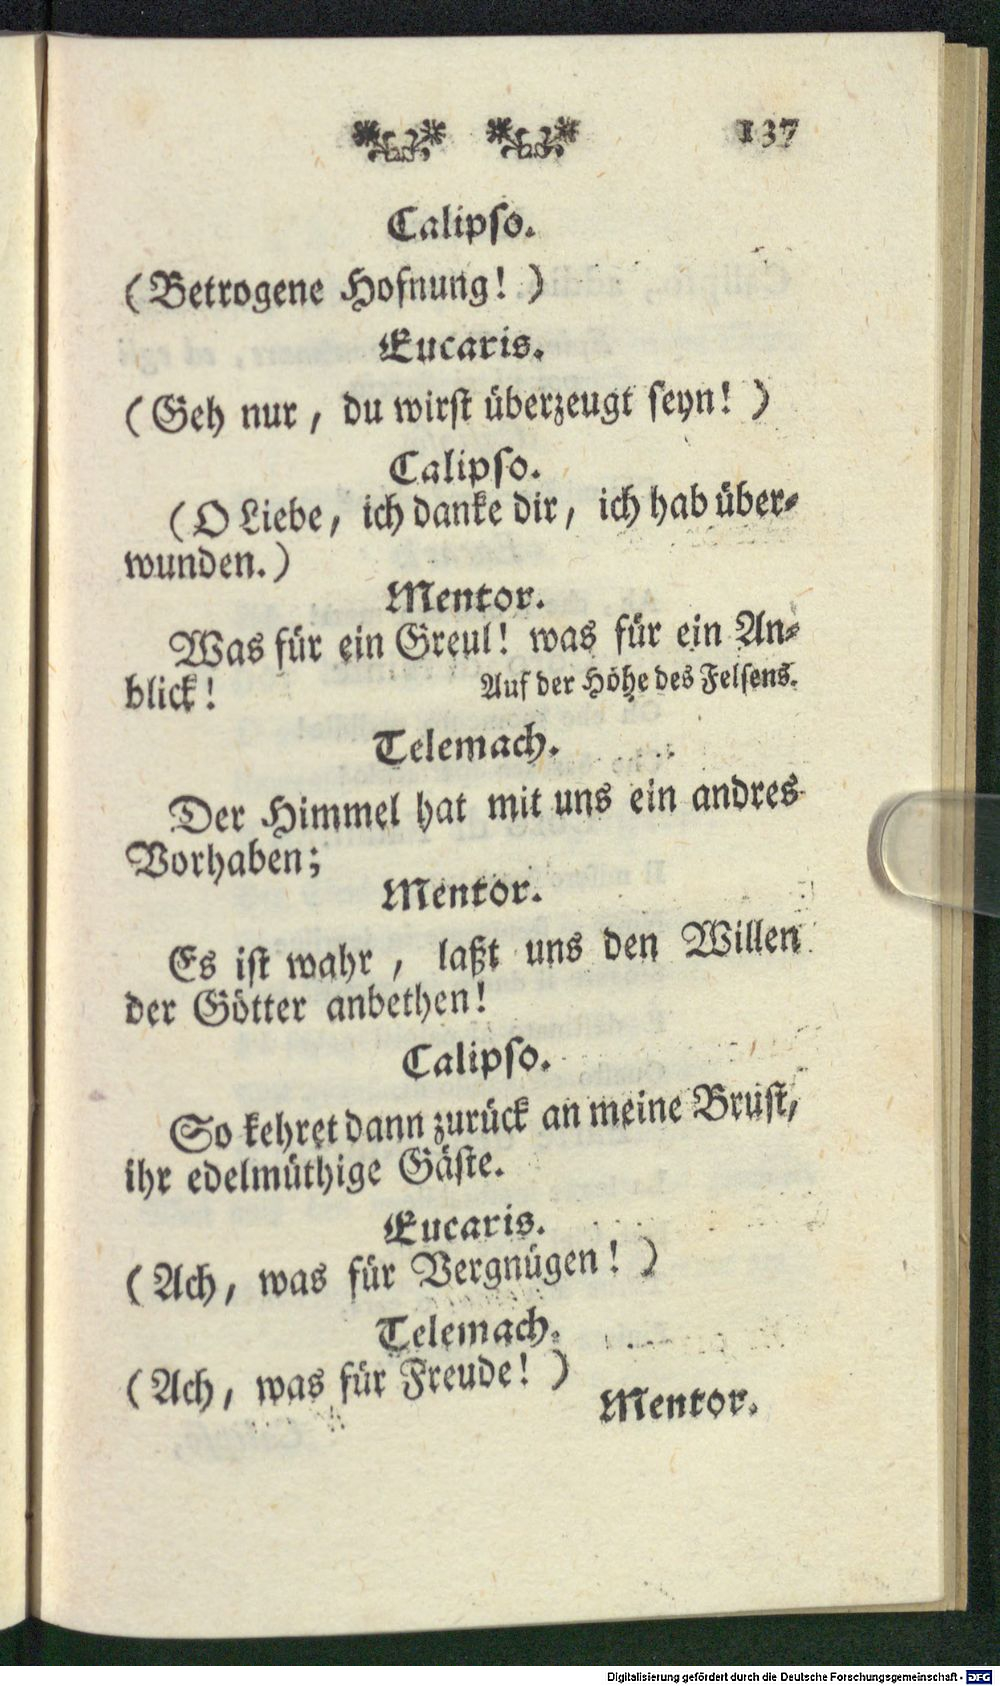 137
Calipso.
(Betrogene Hofnung! )
Eucaris.
(Geh nur, du wirst überzeugt seyn! )
Calipso.
(O Liebe, ich danke dir, ich hab über-
wunden.)
Mentor.
Was für ein Greul! was für ein An-
blick!
Auf der Höhe des Felsens.
Telemach.
Der Himmel hat mit uns ein andres
Vorhaben;
Mentor.
Es ist wahr, laßt uns den Willen
der Götter anbethen!
Calipso.
So kehret dann zurück an meine Brust,
ihr edelmüthige Gäste.
Eucaris.
(Ach, was für Vergnügen! )
Telemach.
(Ach, was für Freude! )
Mentor.
Digitalisierung gefördert durch die Deutsche Forschungsgemeinschaft - DFG